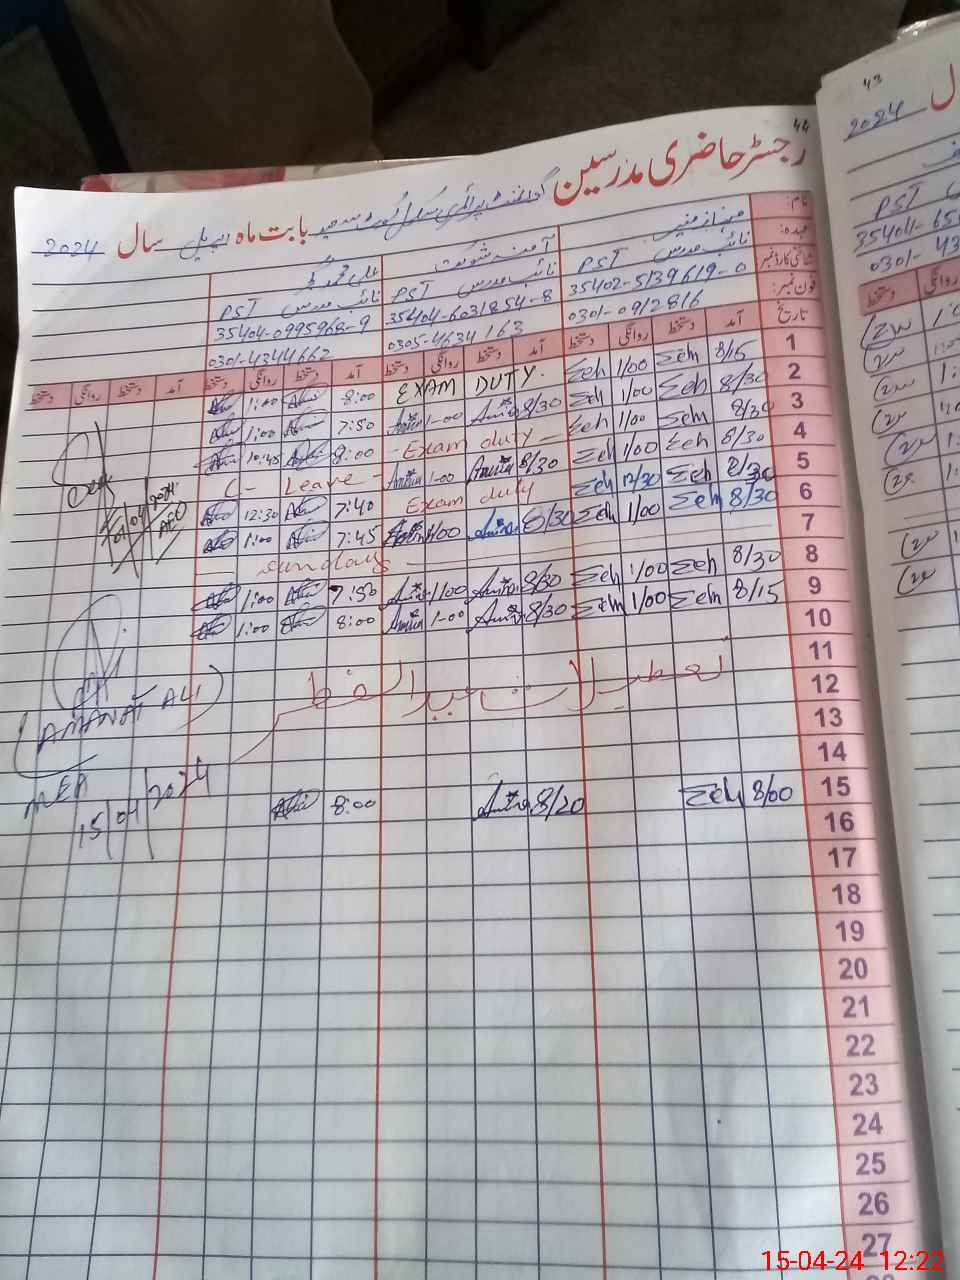 44
رجسٹر حاضری مدرسین گورنمنٹ پرائمری سکول بابت ماہ اپریل سال 2024
نام:
عہدہ:
شناختی کارڈ نمبر
فون نمبر:
تاریخ
آمنہ شوکت
علی محمد
نائب مدرس PST
نائب مدرس PST
نائب مدرس PST
35402-5139619-0
35404-6031854-8
35404-0995968-9
0301-0912816
0305-4634163
0301-4344662
آمد دستخط روانگی دستخط آمد دستخط روانگی دستخط آمد دستخط روانگی دستخط آمد دستخط روانگی دستخط
1 8/15 Zeh 1/00 Zeh EXAM DUTY. 8:00 1:00
2 8/30 Zeh 1/00 Zeh 8/30 Amina 1-00 Amina 7:50 1:00
3 8/30 Zeh 1/00 Zeh - Exam duty - 8:00 10:45
4 8/30 Zeh 1/00 Zeh 8/30 Amina 1-00 Amina - Leave -
5 8/30 Zeh 12/30 Zeh Exam duty 7:40 12:30
6 8/30 Zeh 1/00 Zeh 8/30 Amina 1/00 Amina 7:45 1:00
7 sunday
8 8/30 Zeh 1/00 Zeh 8/30 Amina 1/00 Amina 7:50 1:00
9 8/15 Zeh 1/00 Zeh 8/30 Amina 1-00 Amina 8:00 1:00
10
11
12 تعطیلات عید الفطر
13
14
15 8/00 Zeh 8/20 Amina 8:00
16
17
18
19
20
21
22
23
24
25
26
27
04/2024
AEO
(AMANAT ALI)
MEA
15/04/2024
43
2024
PST
35404-65
0301-43
روانگی
دستخط
15-04-24 12:22